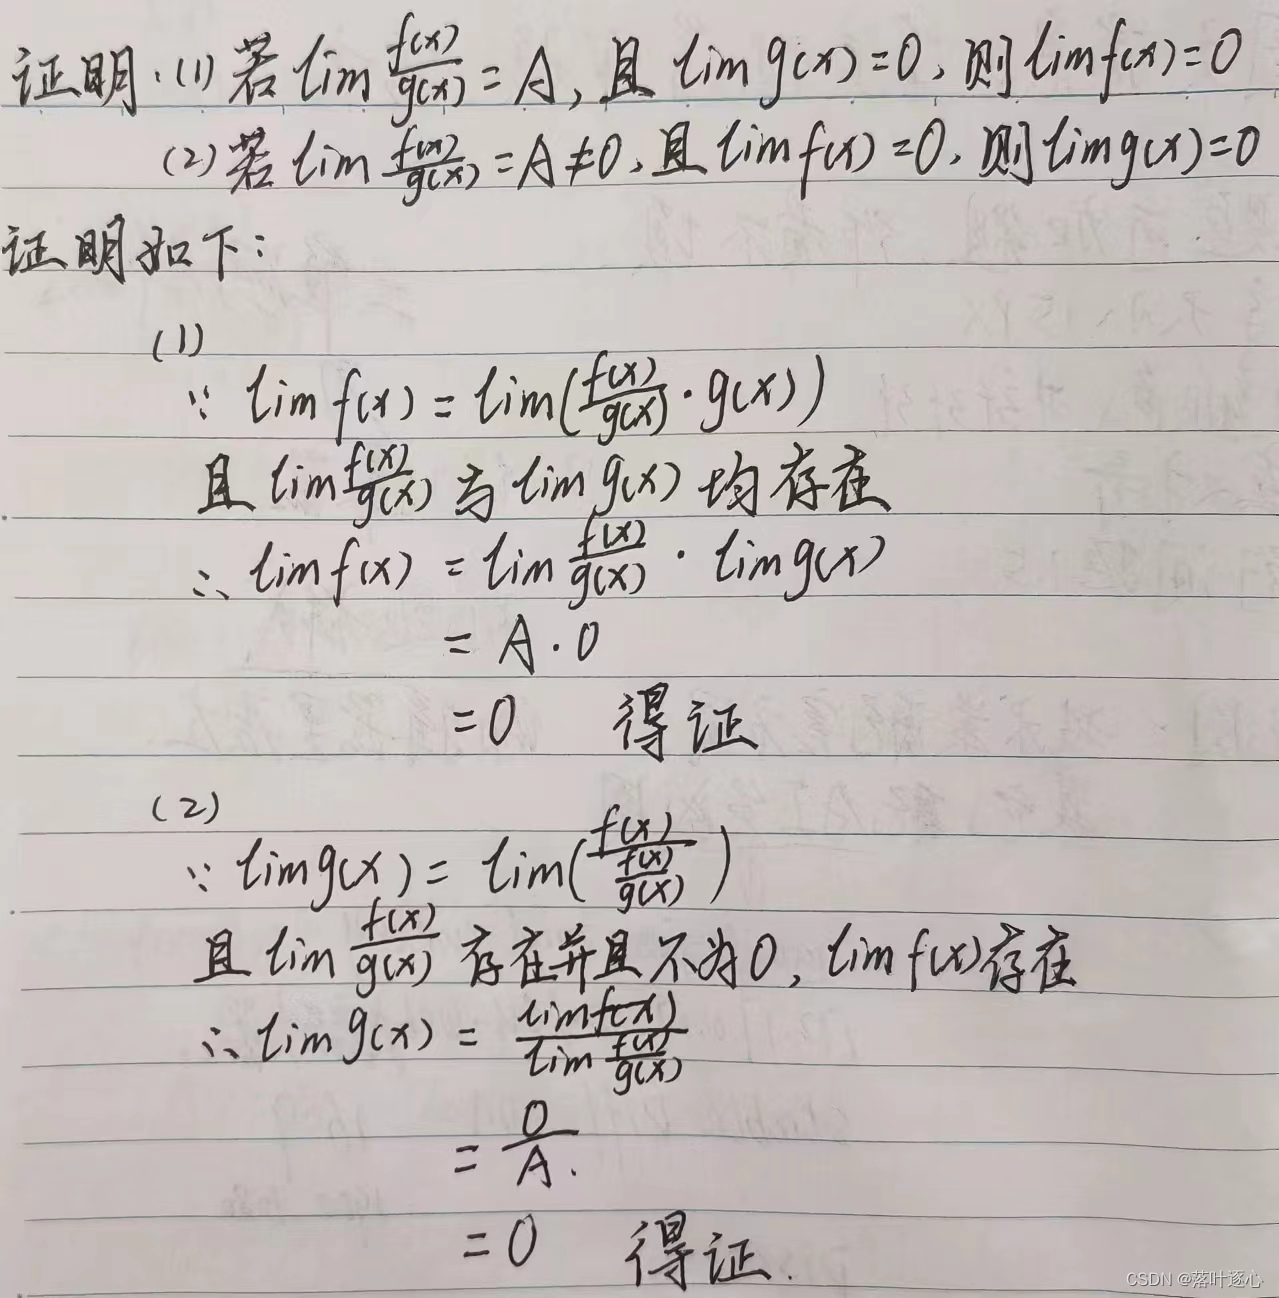 证明.(1)若lim f(x)/g(x) = A, 且 lim g(x)=0, 则lim f(x)=0
(2)若lim f(x)/g(x) = A≠0, 且lim f(x)=0, 则lim g(x)=0
证明如下:
(1)
∵ lim f(x) = lim(f(x)/g(x) · g(x))
且 lim f(x)/g(x) 与 lim g(x) 均存在
∴ lim f(x) = lim f(x)/g(x) · lim g(x)
= A · 0
= 0 得证
(2)
∵ lim g(x) = lim(f(x)/(f(x)/g(x)))
且 lim f(x)/g(x) 存在并且不为0, lim f(x)存在
∴ lim g(x) = lim f(x)/(lim f(x)/g(x))
= 0/A.
= 0 得证.
CSDN @落叶逐心